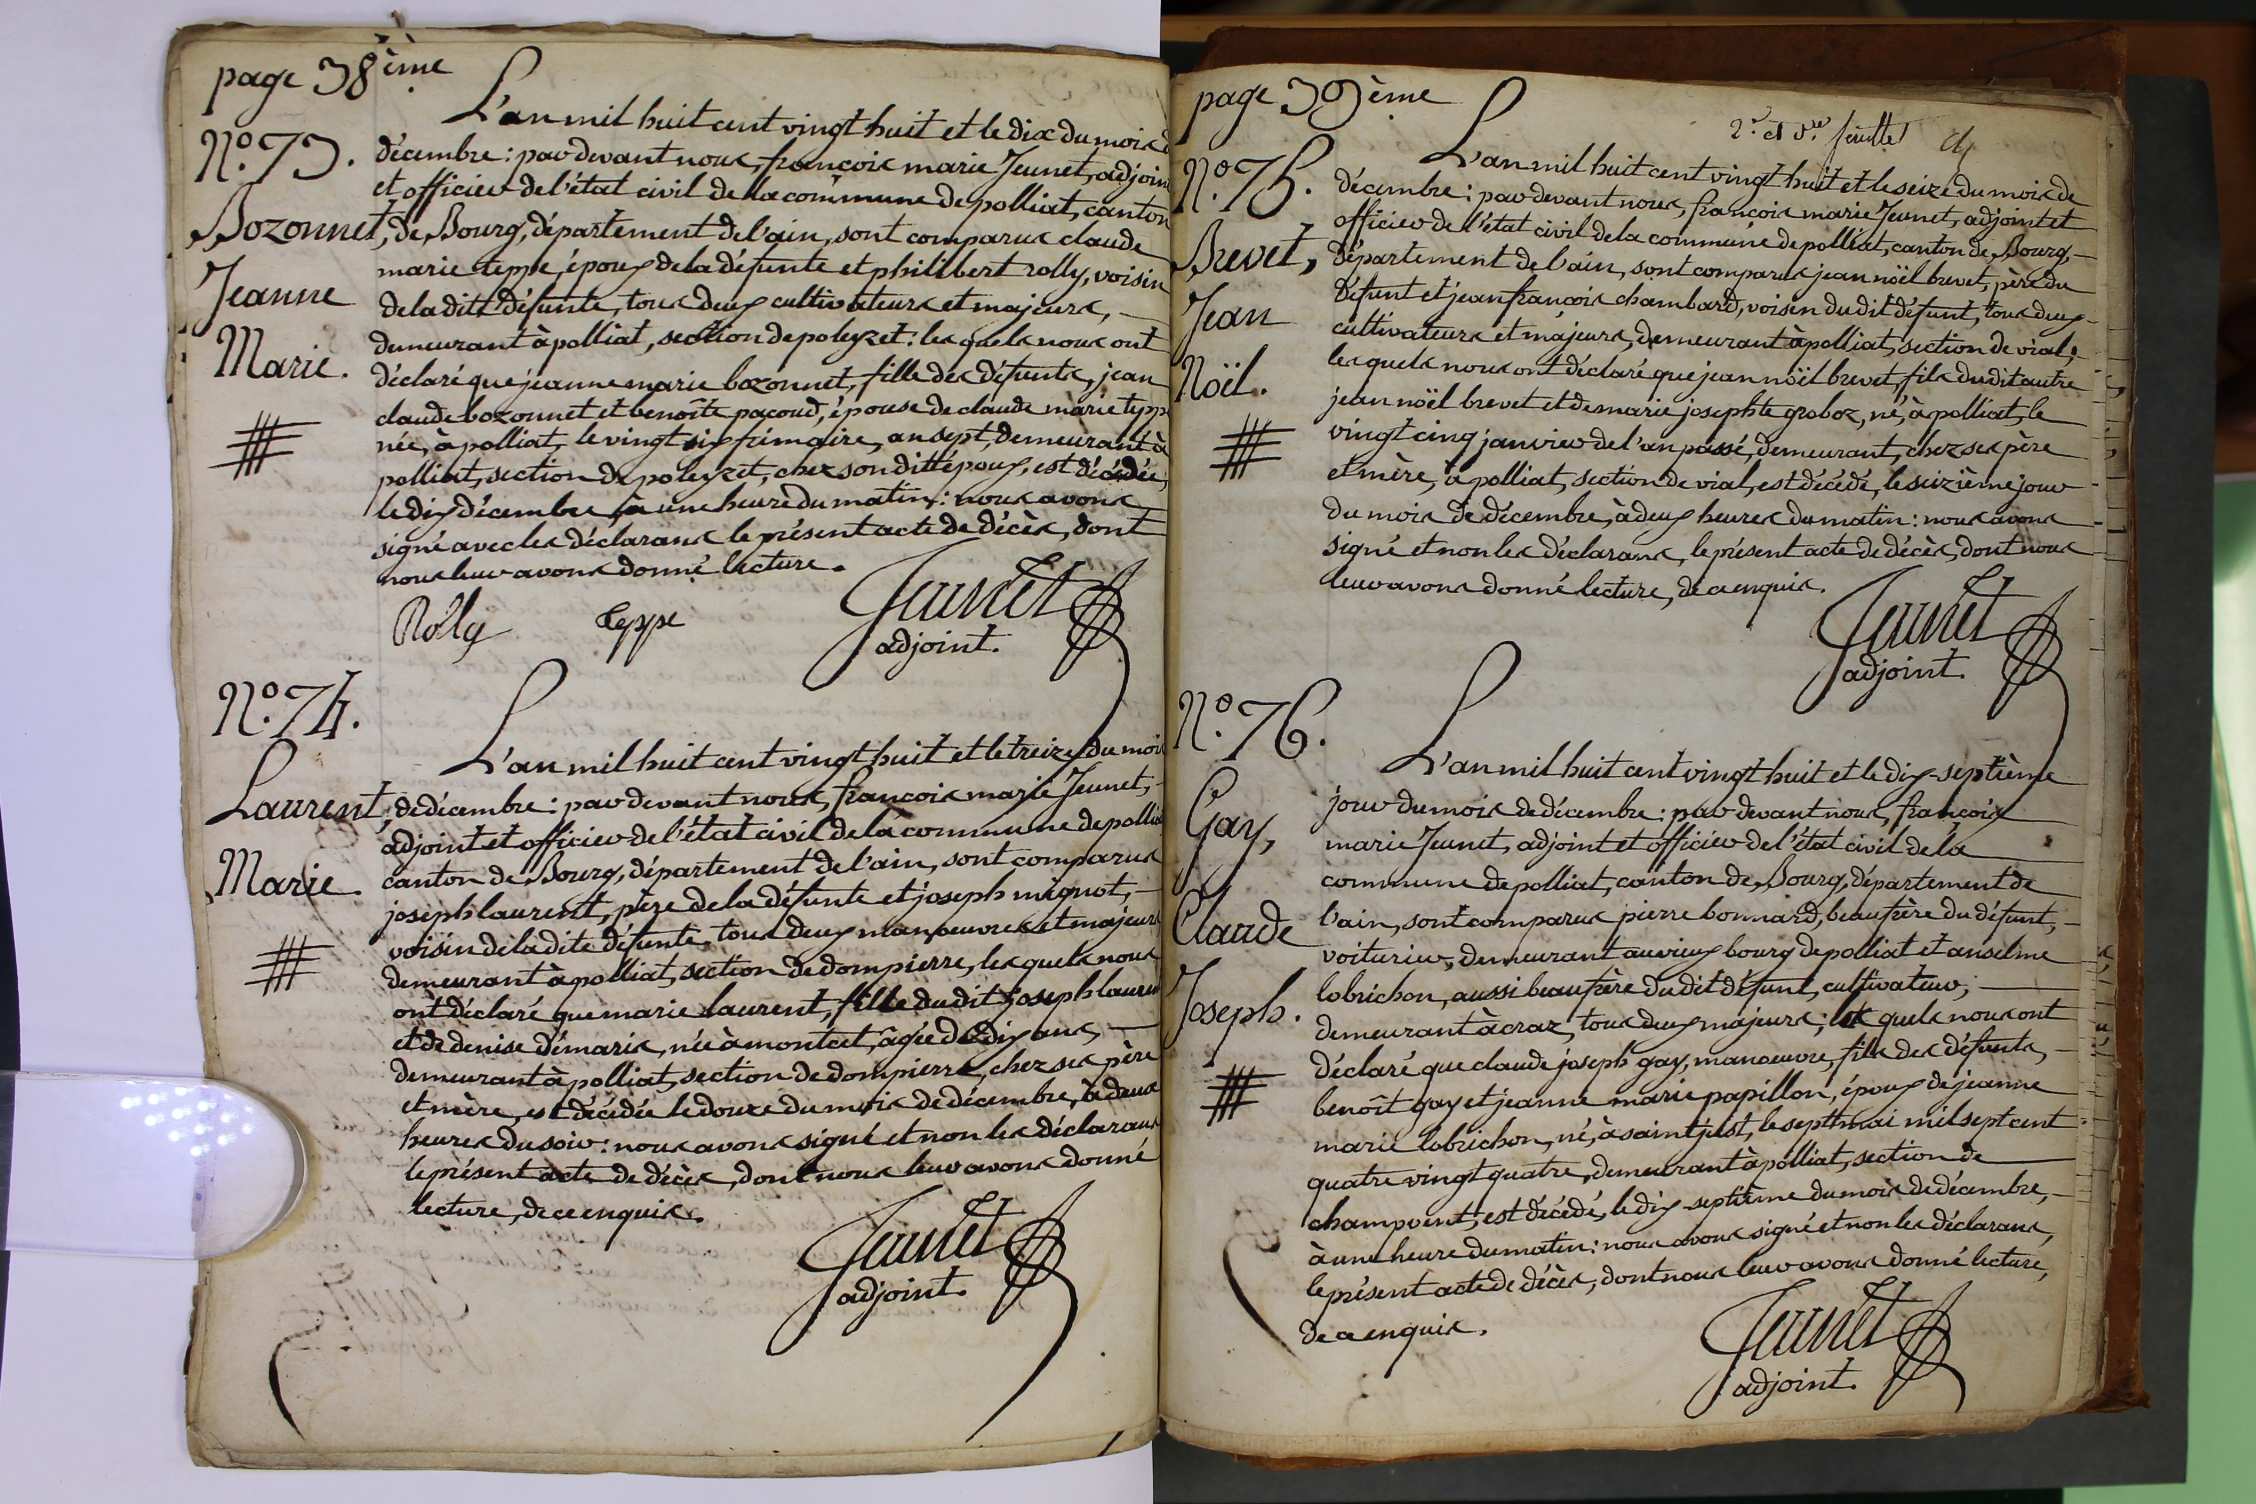 page 38ème
N.º 73.
Bozonnet,
Jeanne
Marie.
L'an mil huit cent vingt huit et le dix du mois d
décembre : par devant nous, françois marie Jeunet, adjoin
et officier de l'état civil de la commune de polliat, canton
de Bourg, département de l'ain, sont comparus claude
marie teppe, époux de la défunte et philibert rolly, voisin
de la dite défunte, tous deux cultivateurs et majeurs,
demeurant à polliat, section de poleyzet : les quels nous ont
déclaré que jeanne marie bozonnet, fille des défunts, jean
claude bozonnet et benoîte pacoud, épouse de claude marie tepp
née, à polliat, le vingt six frimaire, an sept, demeurant à
polliat, section de poleyzet, chez son dit époux, est décédée,
le dix décembre, à une heure du matin : nous avons
signé avec les déclarans le présent acte de décès, dont
nous leur avons donné lecture.
Rolly teppe Jeunet
adjoint.
N.º 74.
Laurent,
Marie.
L'an mil huit cent vingt huit et le treize du mois
de décembre : par devant nous, françois marie Jeunet,
adjoint et officier de l'état civil de la commune de pollia
canton de Bourg, département de l'ain, sont comparus
joseph laurent, père de la défunte et joseph mignot,
voisin de la dite défunte, tous deux manoeuvres et majeurs
demeurant à polliat, section de dompierre, les quels nous
ont déclaré que marie laurent, fille du dit joseph lauren
et de denise démaris, née à montcet, âgée de dix ans,
demeurant à polliat, section de dompierre, chez ses père
et mère, est décédée le douze du mois de décembre, à deux
heures du soir : nous avons signé et non les déclarans
le présent acte de décès, dont nous leur avons donné
lecture, de ce enquis.
Jeunet
adjoint.
page 39ème
2.e et d.re feuillet
N.º 75.
Brevet,
Jean
Noël.
L'an mil huit cent vingt huit et le seize du mois de
décembre : par devant nous, françois marie Jeunet, adjoint et
officier de l'état civil de la commune de polliat, canton de Bourg,
département de l'ain, sont comparus jean noël brevet, père du
défunt et jean françois chambard, voisin du dit défunt, tous deux
cultivateurs et majeurs, demeurant à polliat, section de vial ;
les quels nous ont déclaré que jean noël brevet, fils du dit autre
jean noël brevet et de marie josephte groboz, né, à polliat, le
vingt cinq janvier de l'an passé, demeurant, chez ses père
et mère, à polliat, section de vial, est décédé, le seizième jour
du mois de décembre, à deux heures du matin : nous avons
signé et non les déclarans, le présent acte de décès, dont nous
leur avons donné lecture, de ce enquis.
Jeunet
adjoint.
N.º 76.
Gay,
Claude
Joseph.
L'an mil huit cent vingt huit et le dix-septième
jour du mois de décembre : par devant nous, françois
marie Jeunet, adjoint et officier de l'état civil de la
commune de polliat, canton de Bourg, département de
l'ain, sont comparus pierre bonnard, beaufrère du défunt,
voiturier, demeurant au vieux bourg de polliat et anselme
lobrichon, aussi beaufrère du dit défunt, cultivateur,
demeurant à craz, tous deux majeurs ; les quels nous ont
déclaré que claude joseph gay, manoeuvre, fils des défunts,
benoît gay et jeanne marie papillon, époux de jeanne
marie lobrichon, né, à saint just, le sept mai mil sept cent
quatre vingt quatre, demeurant à polliat, section de
champvent, est décédé, le dix-septième du mois de décembre,
à une heure du matin : nous avons signé et non les déclarans,
le présent acte de décès, dont nous leur avons donné lecture,
de ce enquis.
Jeunet
adjoint.